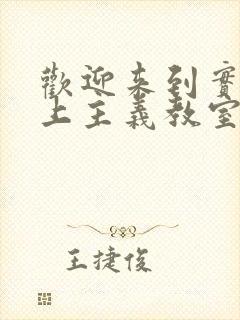 歡迎來到實
上主義教室
王捷俊